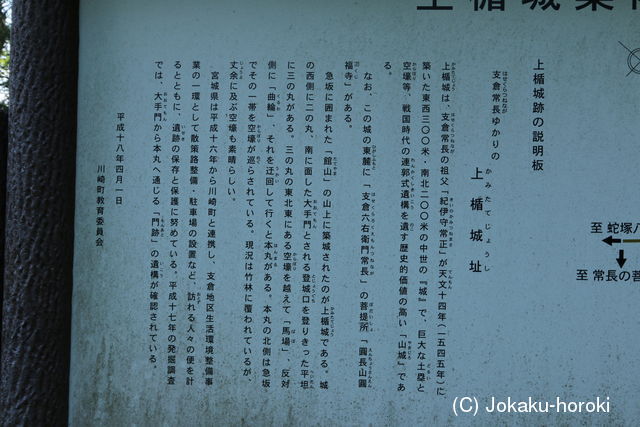 上楯城案内
上楯城跡の説明板
支倉常長ゆかりの
はせくらつねなが
上楯城址
かみたてじょうし
上楯城は、支倉常長の祖父「紀伊守常正」が天文十四年(一五四五年)に
築いた東西三〇〇米・南北二〇〇米の中世の『城』で、巨大な土塁と
空壕等、戦国時代の連郭式遺構を遺す歴史的価値の高い「山城」であ
る。
なお、この城の東麓に「支倉六右衛門常長」の菩提所「圓長山圓
福寺」がある。
急坂に囲まれた「館山」の山上に築城されたのが上楯城である。城
の西側に二の丸、南に面した大手門とされる登城口を登りきった平坦
に三の丸がある。三の丸の東北東にある空壕を越えて「馬場」、反対
側に「曲輪」、それを迂回して行くと本丸がある。本丸の北側は急坂
でその一帯を空壕が巡らされている。現況は竹林に覆われているが、
丈余に及ぶ空壕も素晴らしい。
宮城県は平成十六年から川崎町と連携し、支倉地区生活環境整備事
業の一環として散策路整備・駐車場の設置など、訪れる人々の便を計
るとともに、遺跡の保存と保護に努めている。平成十七年の発掘調査
では、大手門から本丸へ通じる「門跡」の遺構が確認されている。
平成十八年四月一日
川崎町教育委員会
至 蛇塚八
至 常長の菩
(C) Jokaku-horoki